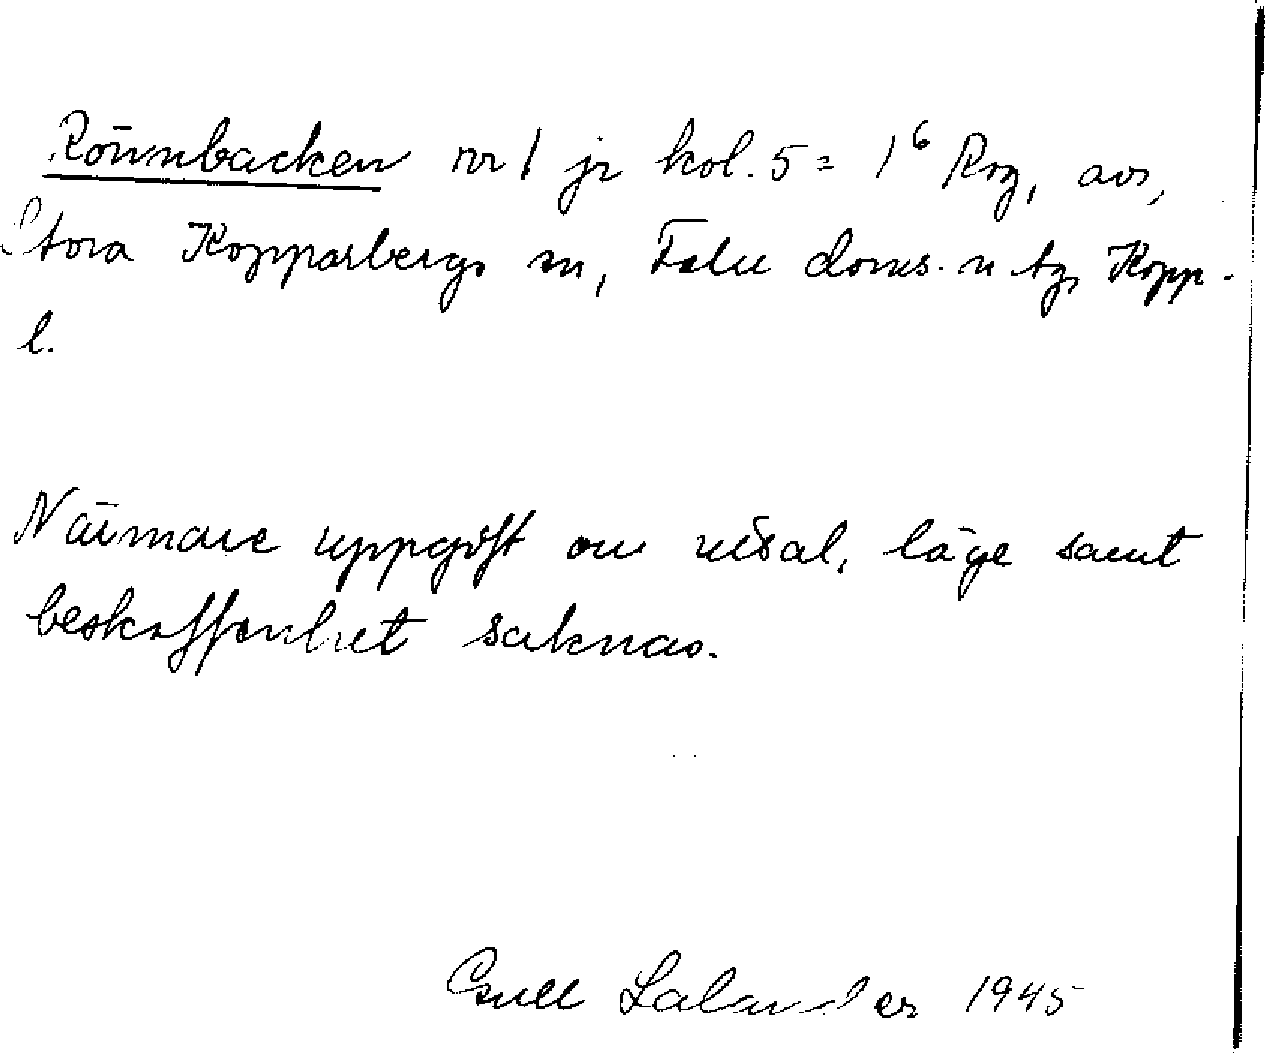 Rönnbacken nr 1 jr kol. 5 = 1⁶ Rog, avs,
Stora Kopparbergs sn, Falu doms. n tg, Kopp.
l.
Närmare uppgift om utsal, läge samt
beskaffenhet saknas.
Gull Salander 1945